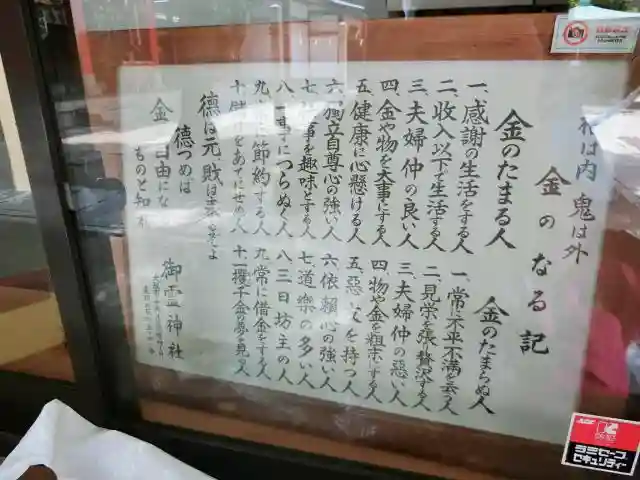 は内 鬼は外
金のなる記
金のたまる人
一、感謝の生活をする人
二、収入以下で生活する人
三、夫婦仲の良い人
四、金や物を大事にする人
五、健康に心懸ける人
六、独立自尊心の強い人
七、仕事を趣味とする人
八、一事につらぬく人
九、常に節約する人
十、儲けをあてにせぬ人
金のたまらぬ人
一、常に不平不満を云う人
二、見栄を張り贅沢する人
三、夫婦仲の悪い人
四、物や金を粗末にする人
五、悪い友を持つ人
六、依頼心の強い人
七、道楽の多い人
八、三日坊主の人
九、常に借金をする人
十、一攫千金の夢を見る人
徳は元 財は末と考えよ
徳つめば
金自由になる
ものと知れ
御霊神社
セキュリティー